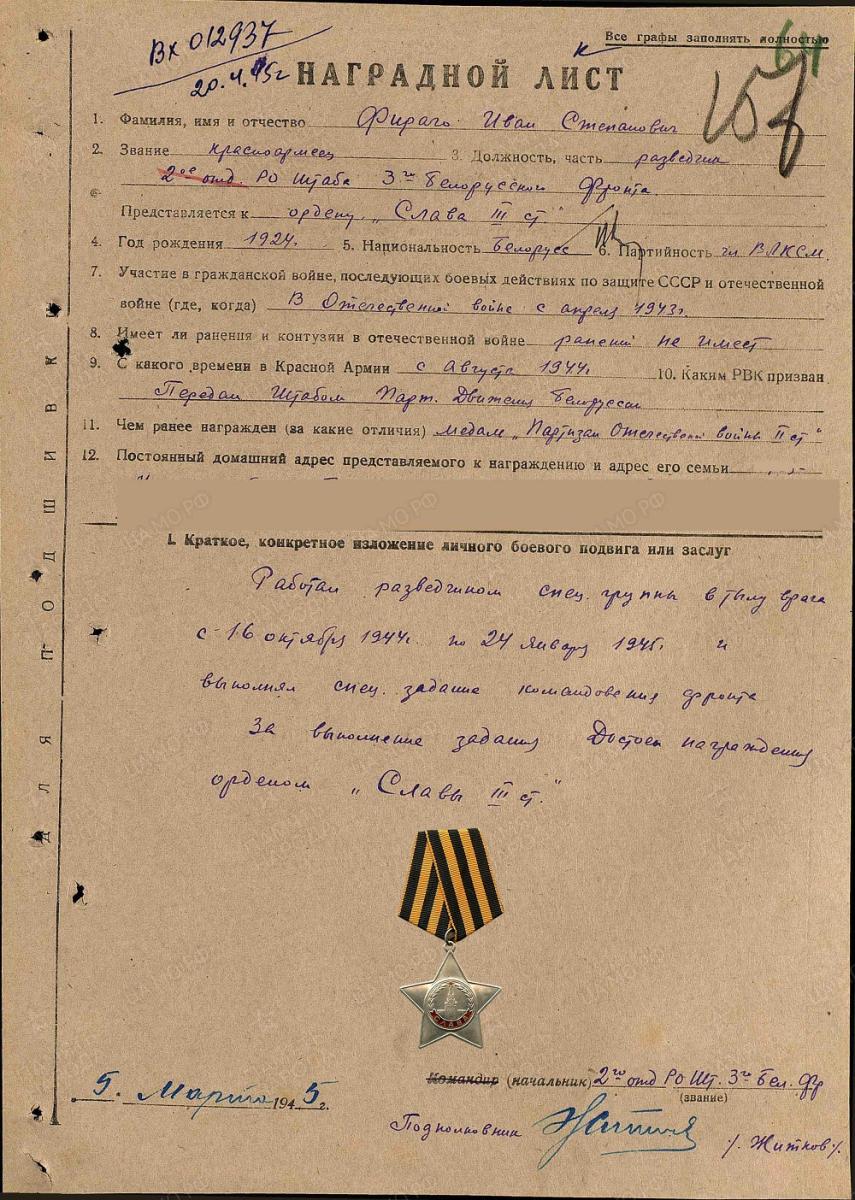 Вх 012937
20.4.45г
Все графы заполнять полностью
64
НАГРАДНОЙ ЛИСТ
1. Фамилия, имя и отчество Фираго Иван Степанович
2. Звание красноармеец 3. Должность, часть разведчик
2ое отд. РО Штаба 3го Белорусского фронта
Представляется к ордену "Слава III ст"
4. Год рождения 1924г. 5. Национальность Белорусс 6. Партийность чл ВЛКСМ.
7. Участие в гражданской войне, последующих боевых действиях по защите СССР и отечественной
войне (где, когда) В Отечественной войне с апреля 1943г.
8. Имеет ли ранения и контузии в отечественной войне ранений не имеет
9. С какого времени в Красной Армии с Августа 1944г 10. Каким РВК призван
Передан Штабом Парт. Движения Белоруссии
11. Чем ранее награжден (за какие отличия) медаль "Партизан Отечественной войны II ст"
12. Постоянный домашний адрес представляемого к награждению и адрес его семьи
I. Краткое, конкретное изложение личного боевого подвига или заслуг
Работал разведчиком спец. группы в тылу врага
с 16 октября 1944г. по 24 января 1945г. и
выполнял спец. задание командования фронта
За выполнение задания Достоен награждения
орденом "Славы III ст."
СЛАВА
Командир (начальник) 2го отд РО Шт. 3го Бел. фр
(звание)
5. Марта 1945г.
Подполковник /. Житков /.
ДЛЯ ПОДШИВКИ
ЦАМО РФ